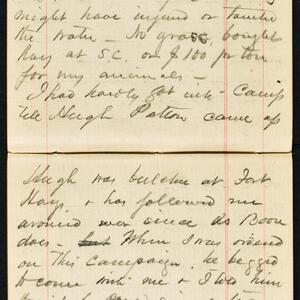 might have injured or
the water - No grass, bought
hay at 5 C. or $100 pr ton
for my animals -
I had hardly got into Camp
till Hugh Patton came up
Hugh was butcher at Fort
Hays & has followed me
around ever since as Boone
does - but When I was ordered
on this Campaign he begged
to come with me & I was him